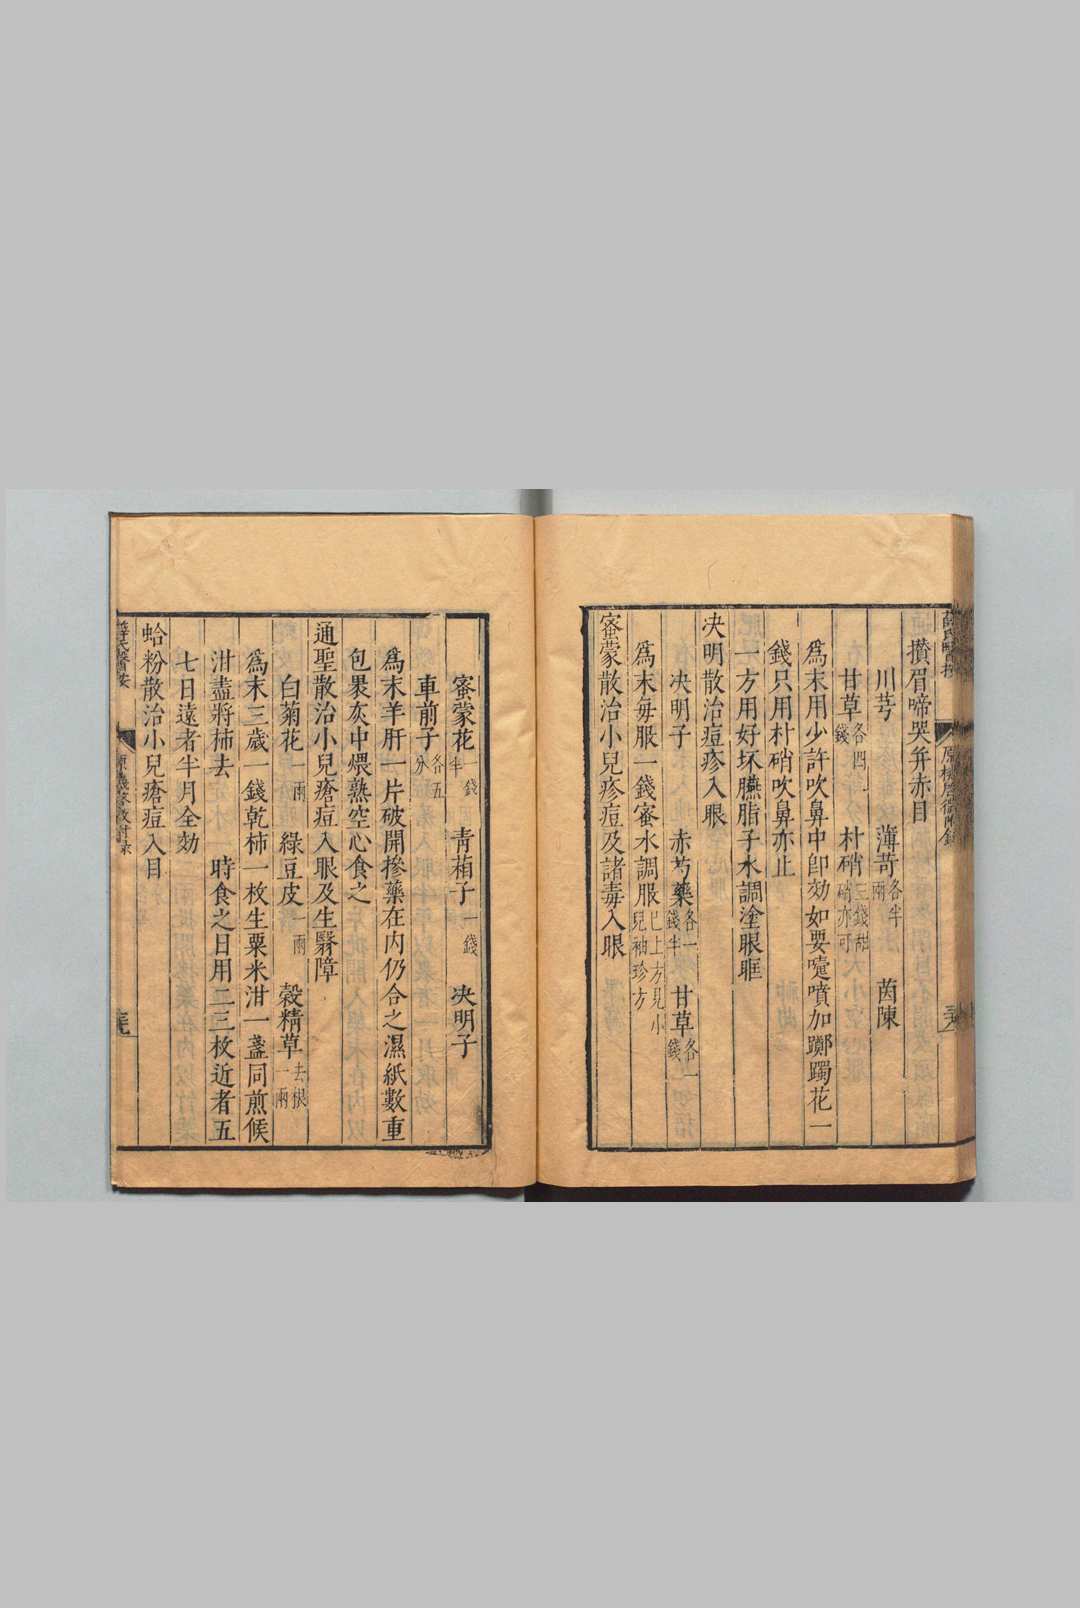 攢眉啼哭并赤目
川芎 薄苛各半兩 茵陳
甘草各四錢 朴硝三錢甜硝亦可
爲末用少許吹鼻中卽効如要嚔噴加躑躅花一
錢只用朴硝吹鼻亦止
一方用好坏臙脂子水調塗眼眶
决明散治痘疹入眼
决明子 赤芍藥各一錢半 甘草各一錢
爲末每服一錢蜜水調服已上方見小兒袖珍方
蜜蒙散治小兒疹痘及諸毒入眼
蜜蒙花一錢半 青葙子一錢 决明子
車前子各五分
爲末羊肝一片破開摻藥在内仍合之濕紙數重
包褁灰中煨熟空心食之
通聖散治小兒瘡痘入眼及生翳障
白菊花一兩 綠豆皮一兩 穀精草去根一兩
爲末三歲一錢乾柿一枚生粟米泔一盞同煎候
泔盡將柿去 時食之日用二三枚近者五
七日遠者半月全効
蛤粉散治小兒瘡痘入目